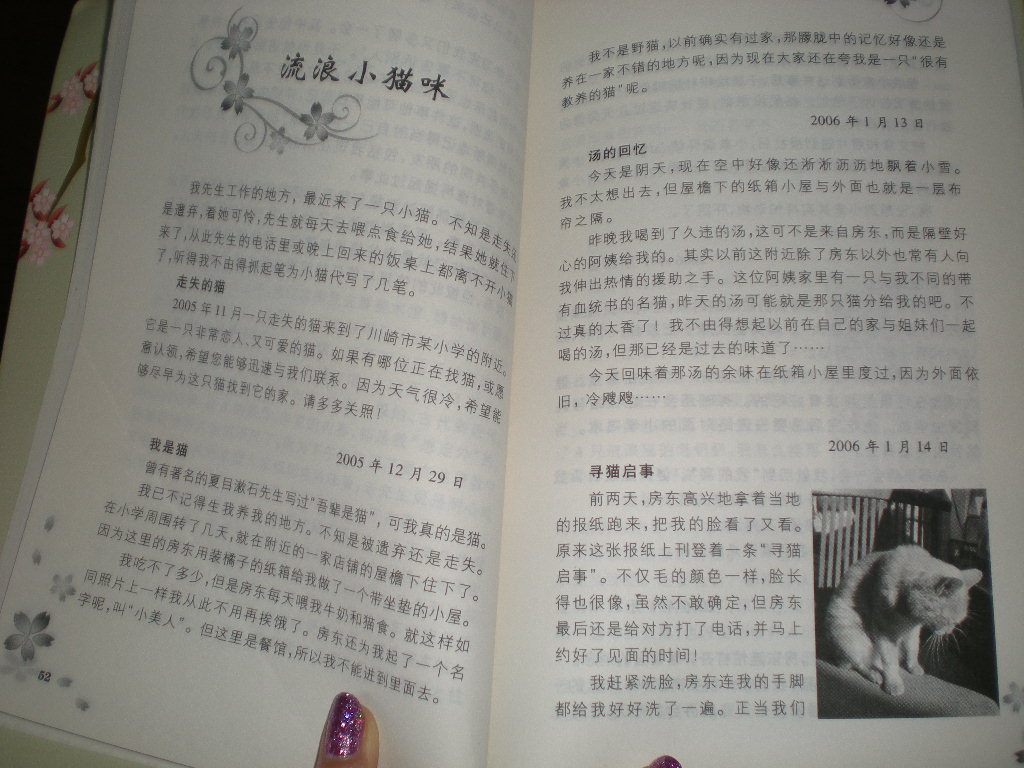 流浪小猫咪
我先生工作的地方，最近来了一只小猫。不知是走失还
是遭弃，看她可怜，先生就每天去喂点食给她，结果她就住下
来了，从此先生的电话里或晚上回来的饭桌上都离不开小猫
了，听得我不由得抓起笔为小猫代写了几笔。
走失的猫
2005年11月一只走失的猫来到了川崎市某小学的附近。
它是一只非常恋人、又可爱的猫。如果有哪位正在找猫，或愿
意认领，希望您能够迅速与我们联系。因为天气很冷，希望能
够尽早为这只猫找到它的家。请多多关照！
2005年12月29日
我是猫
曾有著名的夏目漱石先生写过“吾辈是猫”，可我真的是猫。
我已不记得生我养我的地方。不知是被遗弃还是走失。
在小学周围转了几天，就在附近的一家店铺的屋檐下住下了。
因为这里的房东用装橘子的纸箱给我做了一个带坐垫的小屋。
我吃不了多少，但是房东每天喂我牛奶和猫食。就这样如
同照片上一样我从此不用再挨饿了。房东还为我起了一个名
字呢，叫“小美人”。但这里是餐馆，所以我不能进到里面去。
52
我不是野猫，以前确实有过家，那朦胧中的记忆好像还是
养在一家不错的地方呢，因为现在大家还在夸我是一只“很有
教养的猫”呢。
2006年1月13日
汤的回忆
今天是阴天，现在空中好像还淅淅沥沥地飘着小雪。
我不太想出去，但屋檐下的纸箱小屋与外面也就是一层布
帘之隔。
昨晚我喝到了久违的汤，这可不是来自房东，而是隔壁好
心的阿姨给我的。其实以前这附近除了房东以外也常有人向
我伸出热情的援助之手。这位阿姨家里有一只与我不同的带
有血统书的名猫，昨天的汤可能就是那只猫分给我的吧。不
过真的太香了！我不由得想起以前在自己的家与姐妹们一起
喝的汤，但那已经是过去的味道了……
今天回味着那汤的余味在纸箱小屋里度过，因为外面依
旧，冷飕飕……
2006年1月14日
寻猫启事
前两天，房东高兴地拿着当地
的报纸跑来，把我的脸看了又看。
原来这张报纸上刊登着一条“寻猫
启事”。不仅毛的颜色一样，脸长
得也很像，虽然不敢确定，但房东
最后还是给对方打了电话，并马上
约好了见面的时间！
我赶紧洗脸，房东连我的手脚
都给我好好洗了一遍。正当我们